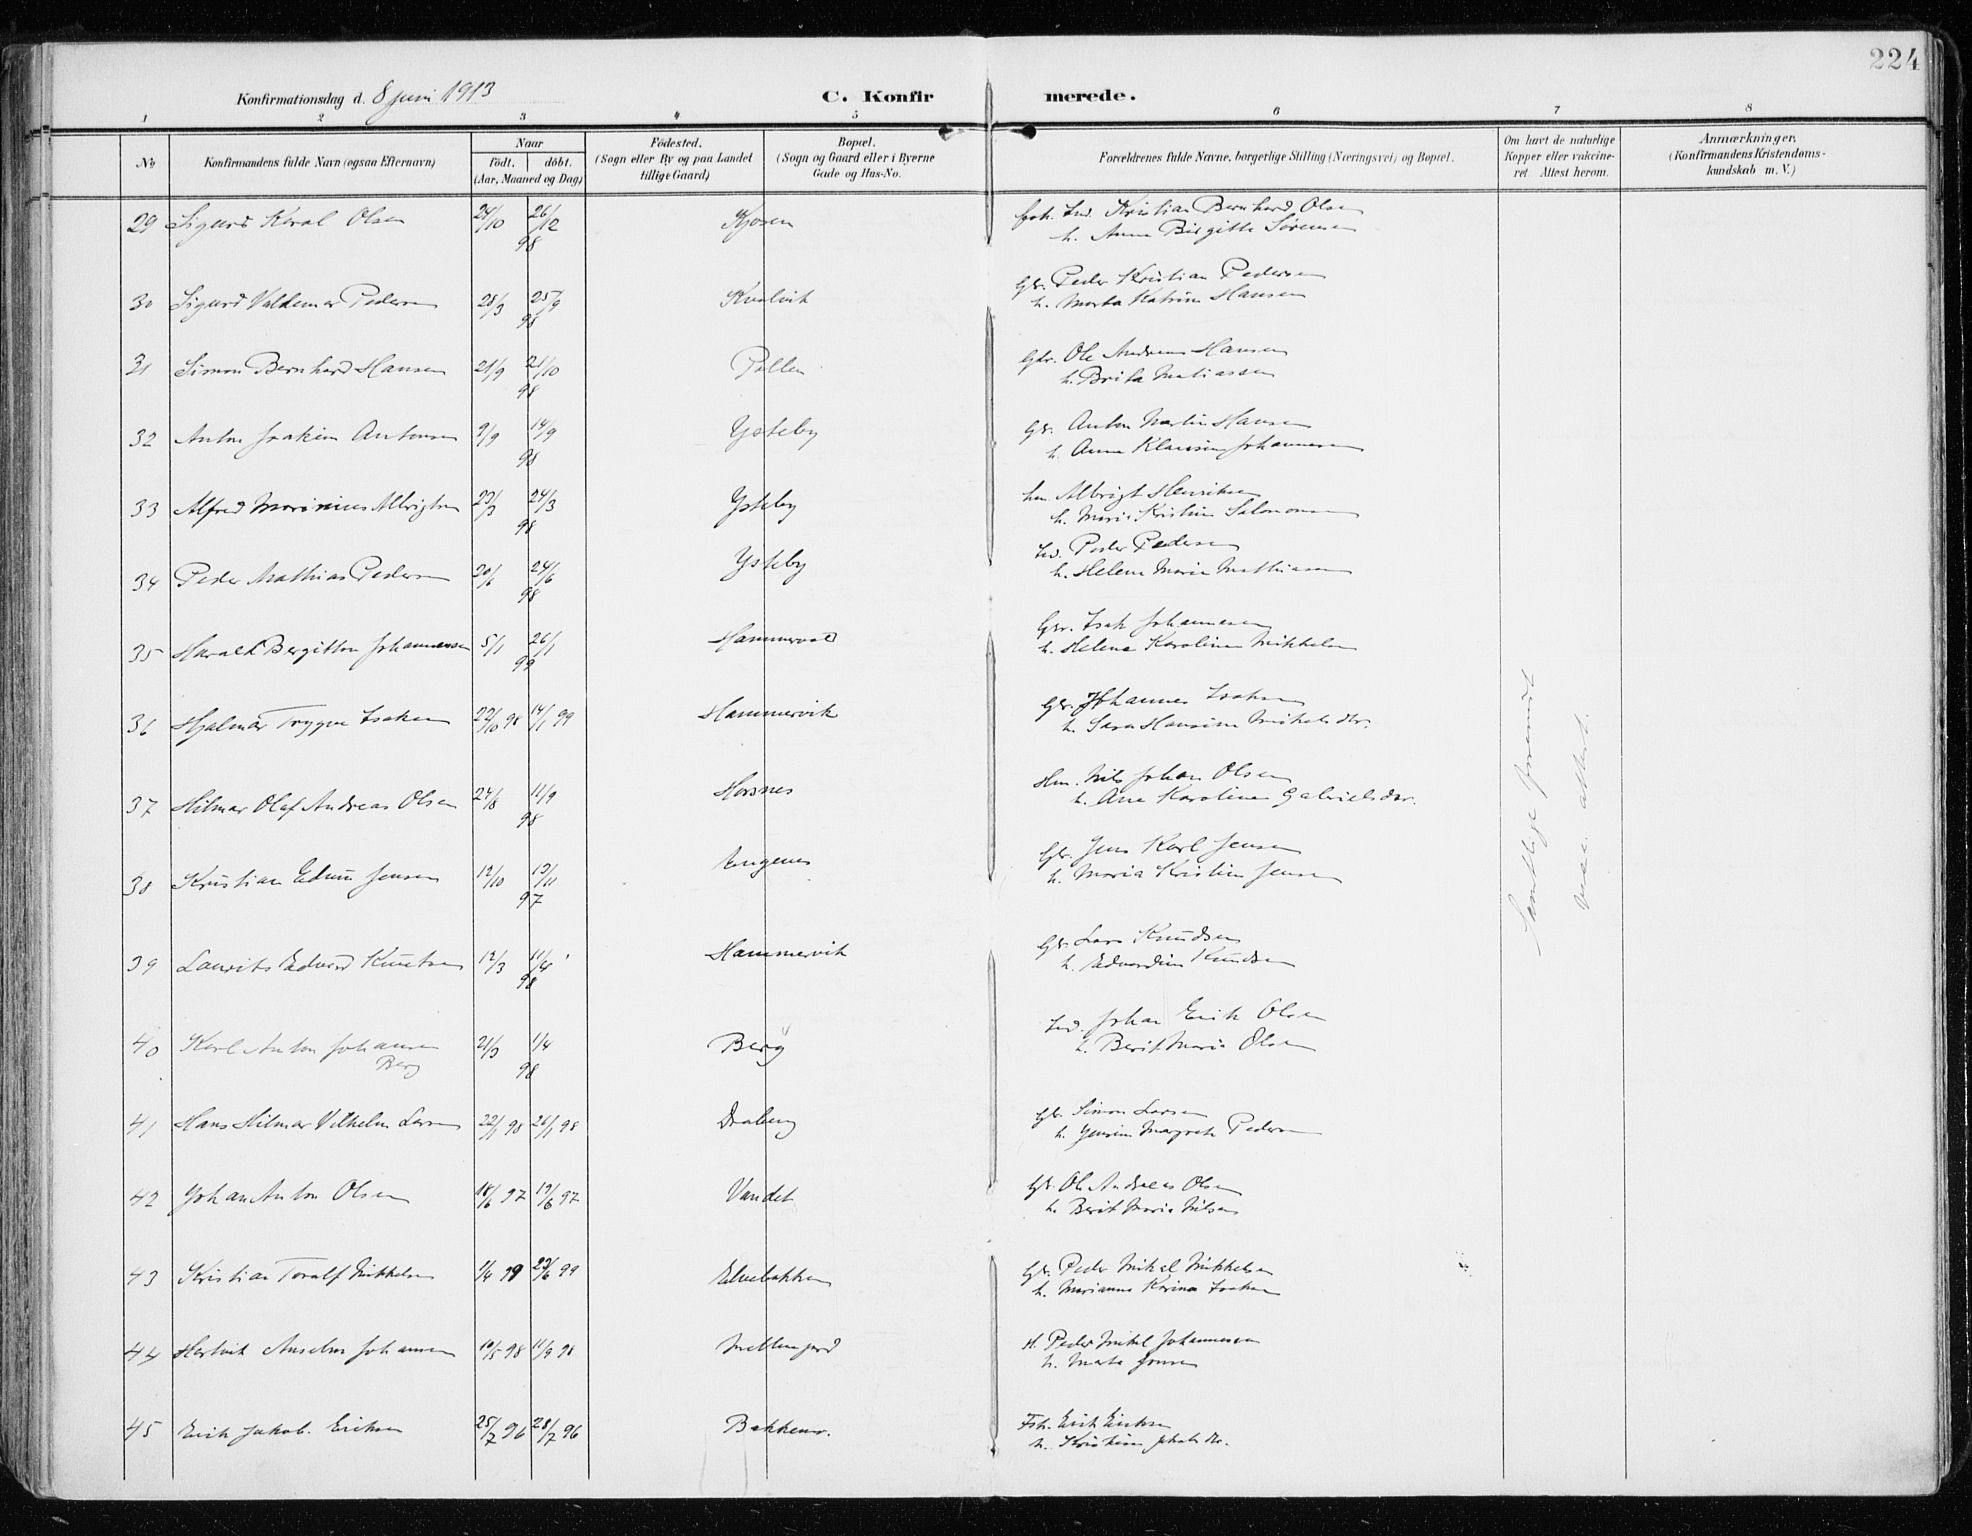 224
Konfirmationsdag d. 8 juni 1913
C. Konfirmerede.
1 2 3 4 5 6 7 8
No
Konfirmandens fulde Navn (ogsaa Efternavn)
Naar
födt. döbt.
(Aar, Maaned og Dag)
Födested.
(Sogn eller By og paa Landet
tillige Gaard)
Bopæl.
(Sogn og Gaard eller i Byerne
Gade og Hus-No.
Forældrenes fulde Navne, borgerlige Stilling (Næringsvei) og Bopæl.
Om havt de naturlige
Kopper eller vakcine-
ret. Attest herom.
Anmærkninger.
(Konfirmandens Kristendoms-
kundskab m. V.)
29 Sigurd Olsen 24/10 26/12 98 Kjosen Kristian Bernhard Olsen
h. Anna Birgitte Sörensen
30 Sigurd Valdemar Pedersen 28/3 25/9 98 Kvalvik Gbr. Peder Kristian Pedersen
h. Marta Katrine Hansen
31 Simon Bernhard Hansen 21/9 21/10 98 Pollen Gbr. Ole Andreas Hansen
h. Brita Matiassen
32 Anton Joakim Antonsen 9/9 14/9 98 Ysteby Gbr. Anton Martin Hansen
h. Anna Klausine Johannesen
33 Alfred Marinius Albrigtsen 24/3 98 Ysteby Albrigt Henriksen
h. Marie Kristine Salomonsen
34 Peder Mathias Pedersen 24/6 98 Ysteby Ind. Peder Pedersen
h. Helene Marie Mathiassen
35 Harald Bergitton Johannessen 5/1 26/1 99 Gbr. Isak Johannesen
h. Helene Karoline Mikkelsen
36 Hjalmar Trygve Isaksen 22/10 98 14/1 99 Hammervik Gbr. Johannes Isaksen
h. Sara Hansine Mikelsdtr.
37 Hilmar Olaf Andreas Olsen 24/8 11/9 98 Horsnes Nils Johan Olsen
h. Ane Karoline Gabrielsdtr.
38 Kristian Edvin Jensen 12/10 13/11 97 Gbr. Jens Karl Jensen
h. Maria Kristine Jensen
39 Laurits Edvard Knutsen 12/3 11/4 98 Hammervik Gbr. Lars Knudsen
h. Edvardine Knudsen
40 Karl Anton Johansen 21/3 1/4 98 Berg Ind. Johan Erik Olsen
Berg h. Berit Maria Olsen
41 Hans Hilmar Vilhelm Larsen 22/1 98 26/1 98 Gbr. Simon Larsen
h. Jensine Margrete Pedersen
42 Johan Anton Olsen 18/6 97 19/6 97 Vandet Gbr. Ole Andreas Olsen
h. Berit Maria Nilsen
43 Kristian Toralf Mikkelsen 1/4 99 99 Elvebakken Gbr. Peder Mikal Mikkelsen
h. Marianna Karina Isaksen
44 Hartvik Anselm Johansen 10/5 98 11/9 98 H. Peder Mikal Johannessen
h. Marta Jonsen
45 Erik Jakob Eriksen 25/7 96 28/7 96 Fsk. Erik Eriksen
h. Kristine Jakobsdtr.
Samtlige fremvist
vac. attest.